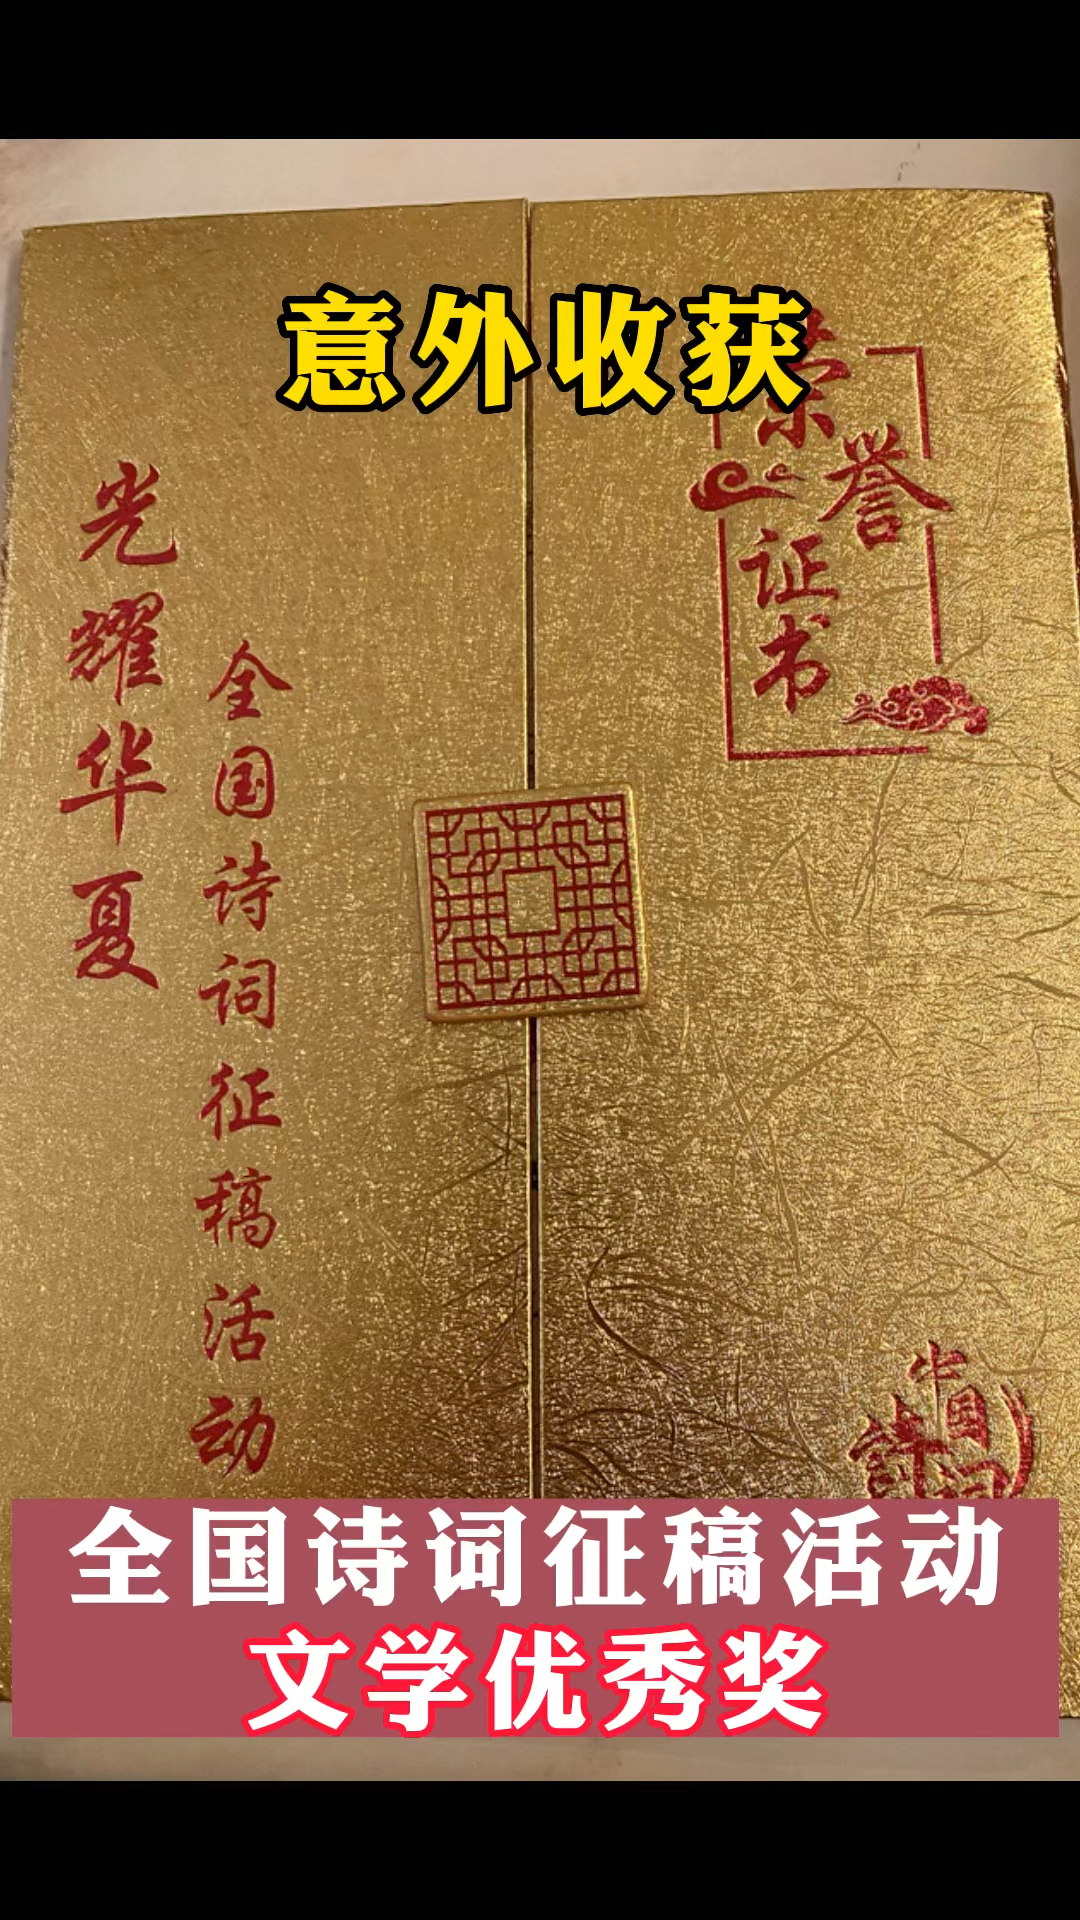 意外收获
荣誉
证书
光耀华夏
全国诗词征稿活动
中国
詩词
全国诗词征稿活动
文学优秀奖